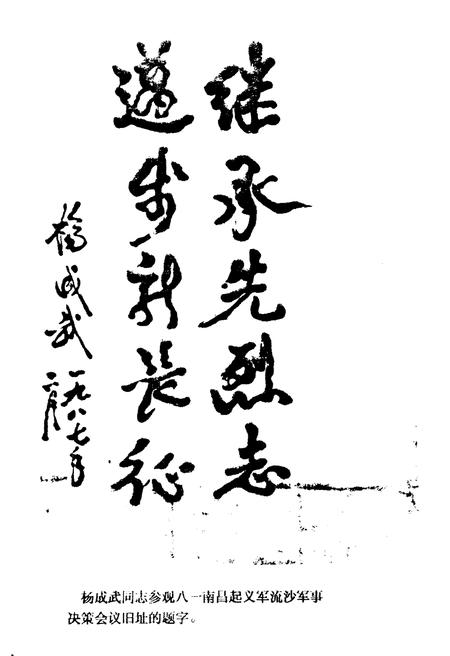 继承先烈志
迈步新长征
杨成武
一九八七年
二月
杨成武同志参观八一南昌起义军流沙军事
决策会议旧址的题字。